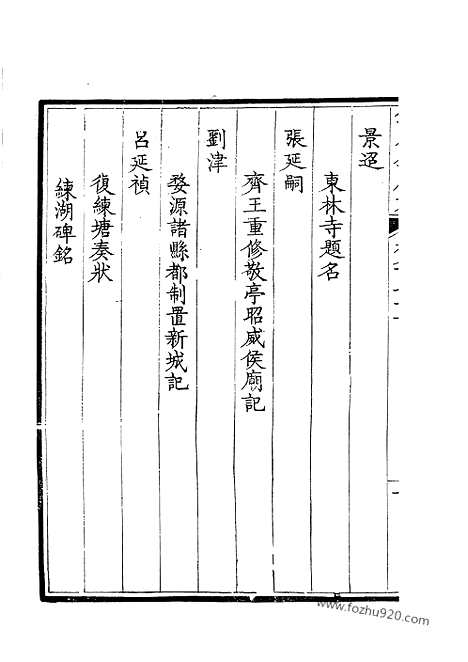 景迢
東林寺題名
張延嗣
齊王重修敬亭昭威侯廟記
劉津
婺源諸縣都制置新城記
呂延禎
復練塘奏狀
練湖碑銘
www.fozhu920.com